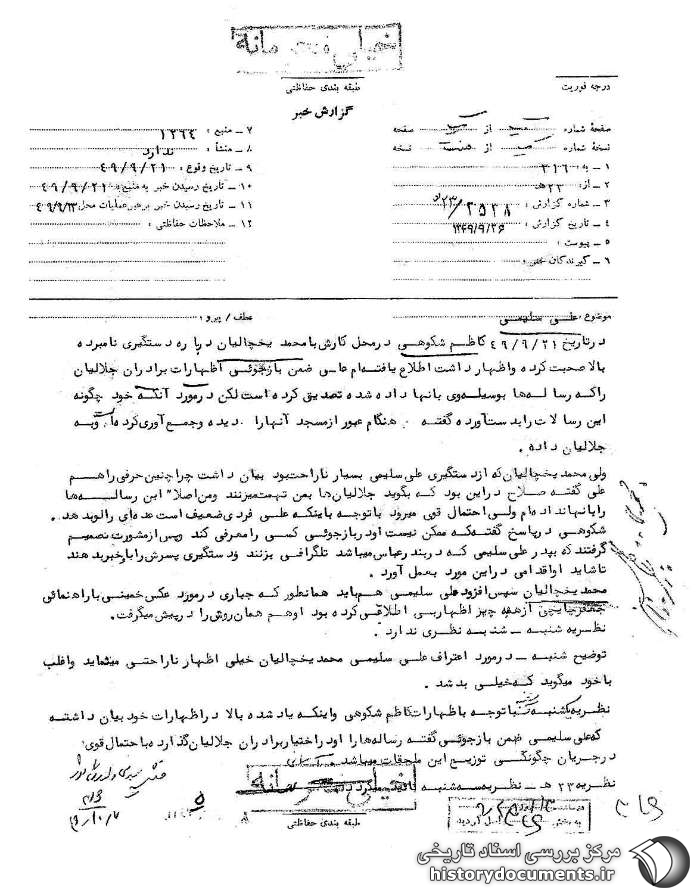 خیلی محرمانه
طبقه بندی حفاظتی
درجه فوریت
گزارش خبر
صفحه شماره یک از یک صفحه
نسخه شماره یک از هشت نسخه
۱ ـ به ۳۱۶
۲ ـ از: ۲۳ هـ
۳ ـ شماره گزارش : ۲۵۲۸/۲۳ هـ
۴ ـ تاریخ گزارش : ۱۳۴۹/۹/۲۵
۵ ـ پیوست :
۶ ـ گیرندگان خبر :
۷ ـ منبع : ۱۲۶۴
۸ ـ منشأ : ندارد
۹ ـ تاریخ وقوع : ۴۹/۹/۲۱
۱۰ ـ تاریخ رسیدن خبر به منبع : ۴۹/۹/۲۱
۱۱ ـ تاریخ رسیدن خبر به رهبر عملیات محل
۱۲ ـ ملاحظات حفاظتی :
موضوع: علی سلیمی
عطف / پیرو :
در تاریخ ۴۹/۹/۲۱ کاظم شکوهی در محل کارش با محمد یخچالیان درباره دستگیری نامبرده
بالا صحبت کرده و اظهار داشت اطلاع یافته‌ام علی ضمن بازجوئی اظهارات برادران جلالیان
را که رساله‌ها بوسیله وی بانها داده شده تصدیق کرده است لکن در مورد آنکه خود چگونه
این رسالات را بدست آورده گفته هنگام عبور از مسجد آنها را دیده و جمع آوری کرده‌ام و به
جلالیان داده .
ولی محمد یخچالیان که از دستگیری علی سلیمی بسیار ناراحت بود بیان داشت چرا چنین حرفی را هم
علی گفته صلاح در این بود که بگوید جلالیان‌ها بمن تهمت میزنند و من اصلا" این رساله‌ها
را بانها نداده‌ام ولی احتمال قوی میرود با توجه باینکه علی فردی ضعیف است عده‌ای را لو بدهد .
شکوهی در پاسخ گفت که ممکن نیست او در بازجوئی کسی را معرفی کند و پس از مشورت تصمیم
گرفتند که بپدر علی سلیمی که در بندرعباس میباشد تلگرافی بزنند و دستگیری پسرش را باو خبر بدهند
تا شاید او اقدامی در این مورد بعمل آورد .
محمد یخچالیان سپس افزود علی سلیمی هم باید همانطور که جباری در مورد عکس خمینی با راهنمائی
جعفر چایچی از همه چیز اظهار بی اطلاقی کرده بود او هم همان روش را در پیش میگرفت .
نظریه شنبه ـ شنبه نظری ندارد .
توضیح شنبه ـ در مورد اعتراف علی سلیمی محمد یخچالیان خیلی اظهار ناراحتی مینماید و اغلب
با خود میگوید که خیلی بد شد .
نظریه یکشنبه ـ با توجه باظهارات کاظم شکوهی و اینکه یاد شده بالا در اظهارات خود بیان داشته
که علی سلیمی ضمن بازجوئی گفته رساله‌ها را او در اختیار برادران جلالیان گذارده باحتمال قوی
در جریان چگونگی توزیع این ملحقات میباشد .
نظریه ۲۳ هـ ـ نظریه سه‌شنبه تائید میگردد
خیلی محرمانه
طبقه بندی حفاظتی
۳۱۶
مرکز بررسی اسناد تاریخی
historydocuments.ir